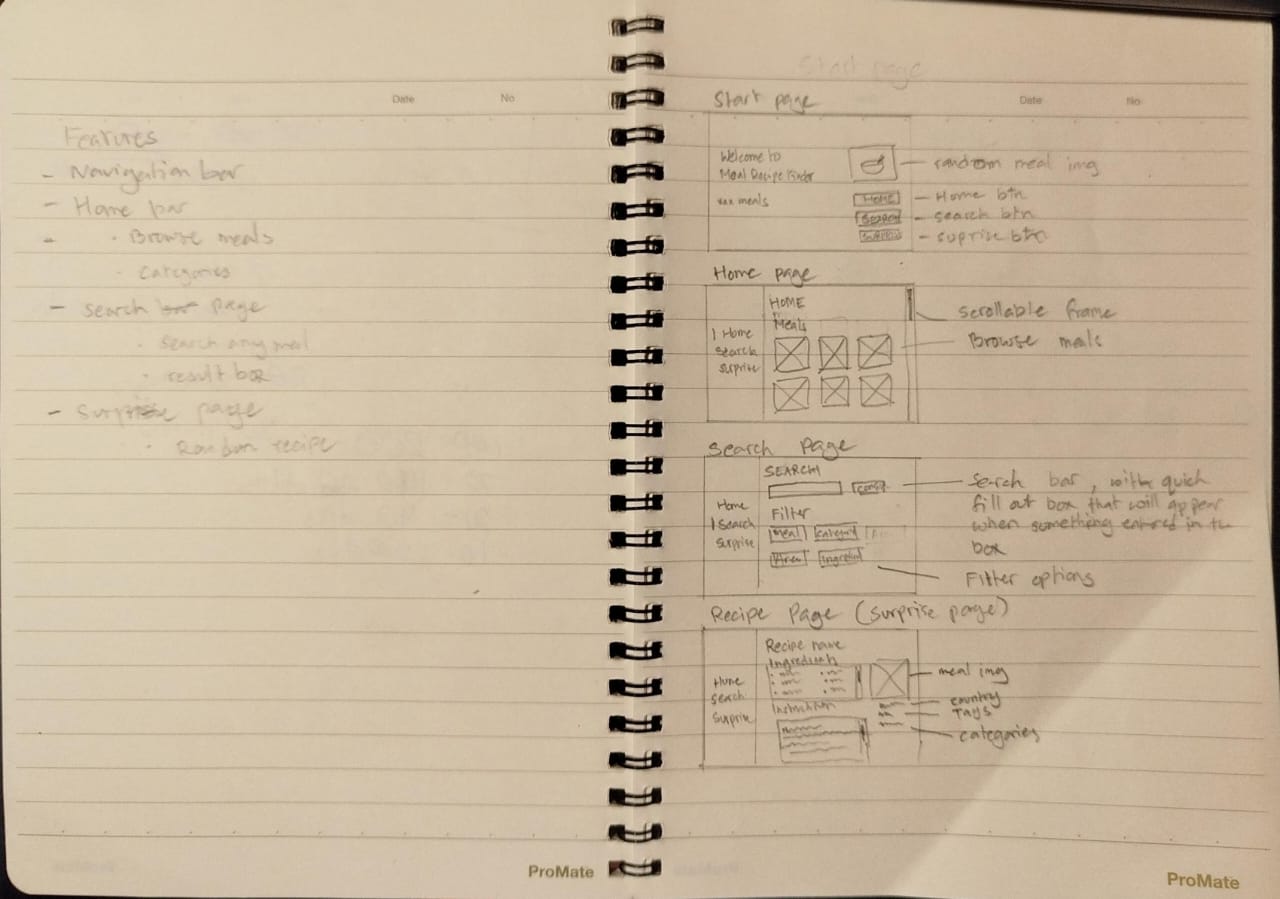 Date No
Features
- Navigation bar
- Home bar
- · Browse meals
· Categories
- Search bar page
· Search any meal
· result box
- Surprise page
· Random recipe
ProMate
Start page
Start page
Date No
Welcome to
Meal Recipe Finder
meals
HOME
SEARCH
SURPRISE
random meal img
- Home btn
- search btn
- suprise btn
Home page
HOME
Meals
| Home
Search
Surprise
scrollable frame
Browse meals
Search Page
SEARCH
Home
| Search
Surprise
Filter
meal category
Area Ingredient
Search bar, with quick
fill out box that will appear
when something entered in the
box
Filter options
Recipe Page (surprise page)
Recipe name
Ingredients
Instruction
Home
Search
Surprise
meal img
country
Tags
categories
ProMate